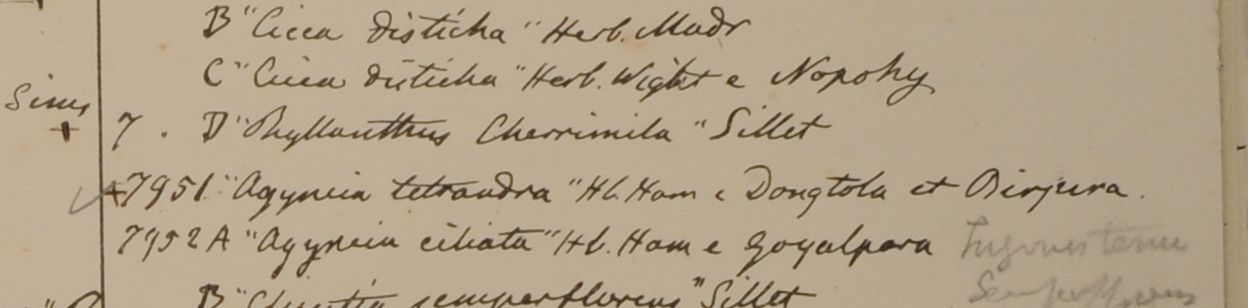 B "Cicca disticha" Herb. Madr
C "Cicca disticha" Herb. Wight e
7. D "Phyllanthus Cherrimila" Sillet
7951 "Agyneia tetrandra" Hb. Ham e Dongtola et
7952 A "Agyneia ciliata" Hb. Ham e Goyalpara
B semperflorens" Sillet